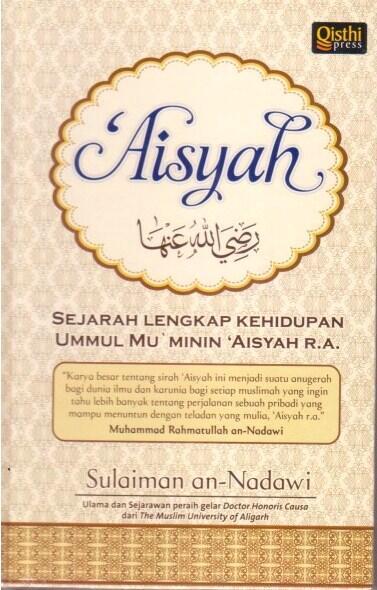 Qisthi
press
'Aisyah
رَضِيَ اللهُ عَنْهَا
SEJARAH LENGKAP KEHIDUPAN
UMMUL MU`MININ ‘AISYAH R.A.
"Karya besar tentang sirah ‘Aisyah ini menjadi suatu anugerah
bagi dunia ilmu dan karunia bagi setiap muslimah yang ingin
tahu lebih banyak tentang perjalanan sebuah pribadi yang
mampu menuntun dengan teladan yang mulia, ‘Aisyah r.a."
Muhammad Rahmatullah an-Nadawi
Sulaiman an-Nadawi
Ulama dan Sejarawan peraih gelar Doctor Honoris Causa
dari The Muslim University of Aligarh